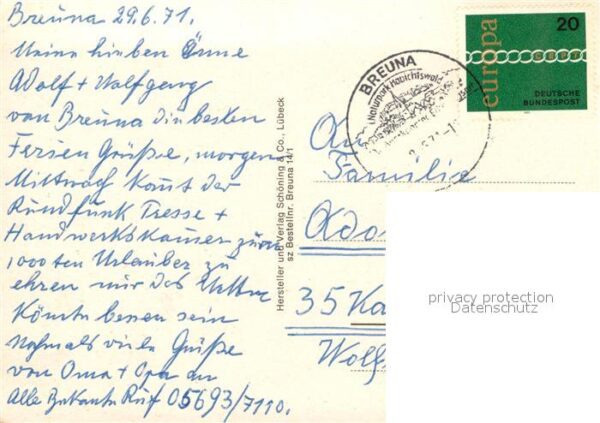 Breuna 29.6.71.
Meine lieben Änne
Adolf + Wolfgang
von Breuna die besten
Ferien Grüße, morgen
Mittwoch komt der
Rundfunk Presse +
Handwerkskammer zum
1000ten Urlauber zu
ehren nur das Wetter
Könnte besser sein
Nochmals viele Grüße
von Oma + Opa an
Alle Bekante Ruf 05693/7110.
Hersteller und Verlag Schöning & Co., Lübeck
sz Bestellnr. Breuna 14/1
BREUNA
Naturpark Habichtswald
europa
20
DEUTSCHE
BUNDESPOST
An
Familie
Ado
35 Ka
Wolf
privacy protection
Datenschutz